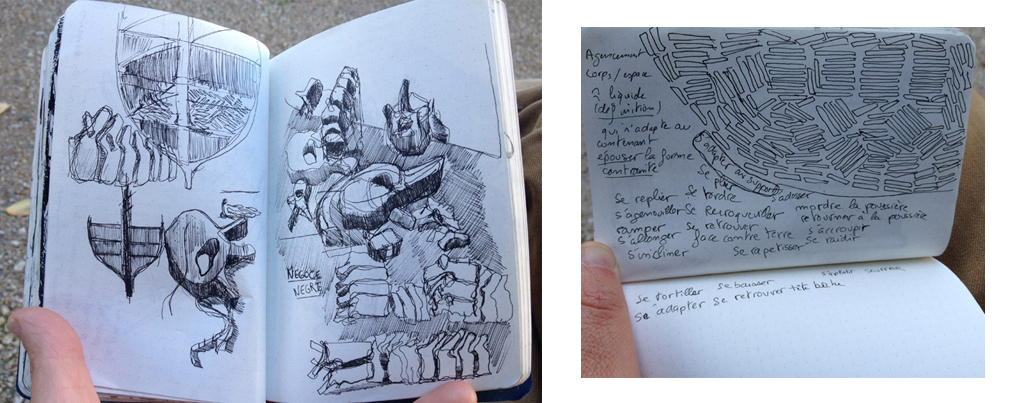 NEGOCE
NEGRE
Agencement
Corps/espace
liquide
(définition)
qui s'adapte au
contenant
épouser la forme
contrainte
s'adapter au support
s'adosser
se plier
se replier se tordre mordre la poussière
s'agenouiller se recroqueviller retourner à la poussière
ramper se retrouver s'accroupir
s'allonger face contre terre se raidir
s'incliner se rapetisser
se tortiller se baisser
s'adapter se retrouver tête bêche